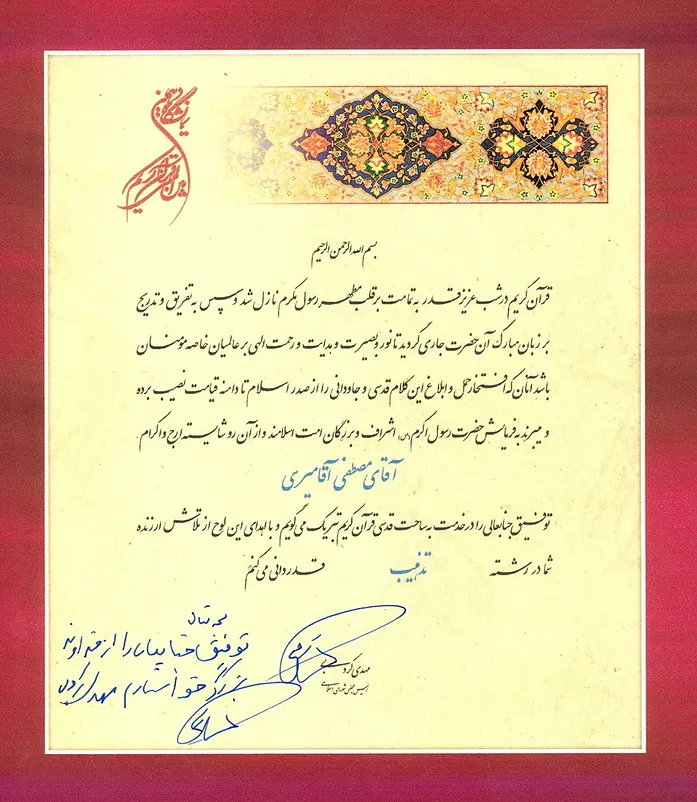 بسم الله الرحمن الرحیم
قرآن کریم در شب عزیز قدر به تمامت بر قلب مطهر رسول مکرم نازل شد و سپس به تفریق و تدریج
بر زبان مبارک آن حضرت جاری گردید تا نور و بصیرت و هدایت و رحمت الهی بر عالمیان خاصه مؤمنان
باشد آنان که افتخار حمل و ابلاغ این کلام قدسی و جاودانی را از صدر اسلام تا دامنه قیامت نصیب برده
و میبرند به فرمایش حضرت رسول اکرم (ص) اشراف و بزرگان امت اسلامند و از آن رو شایسته ارج و اکرام.
آقای مصطفی آقامیری
توفیق جنابعالی را در خدمت به ساحت قدسی قرآن کریم تبریک می گویم و با اهدای این لوح از تلاش ارزنده
شما در رشته تذهیب قدردانی می کنم
مهدی کروبی
رئیس مجلس شورای اسلامی
توفیق جنابعالی را از خداوند
بزرگ خواستارم مهدی کروبی